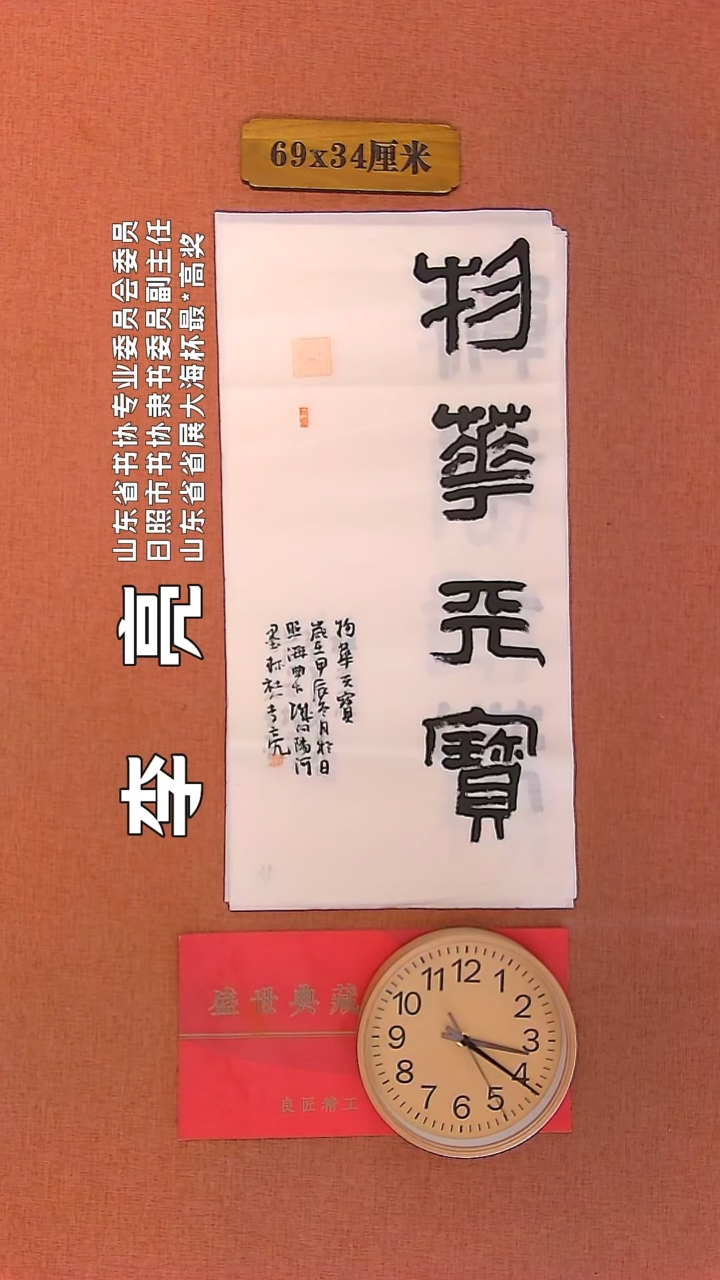 69x34厘米
物華天寶
物華天寶
歲在甲辰冬月於日
照海曲
墨林
李亮
山东省书协专业委员会委员
日照市书协隶书委员副主任
山东省省展大海杯最*高奖
李 亮
盛世典藏
良匠精工
12
1
2
3
4
5
6
7
8
9
10
11